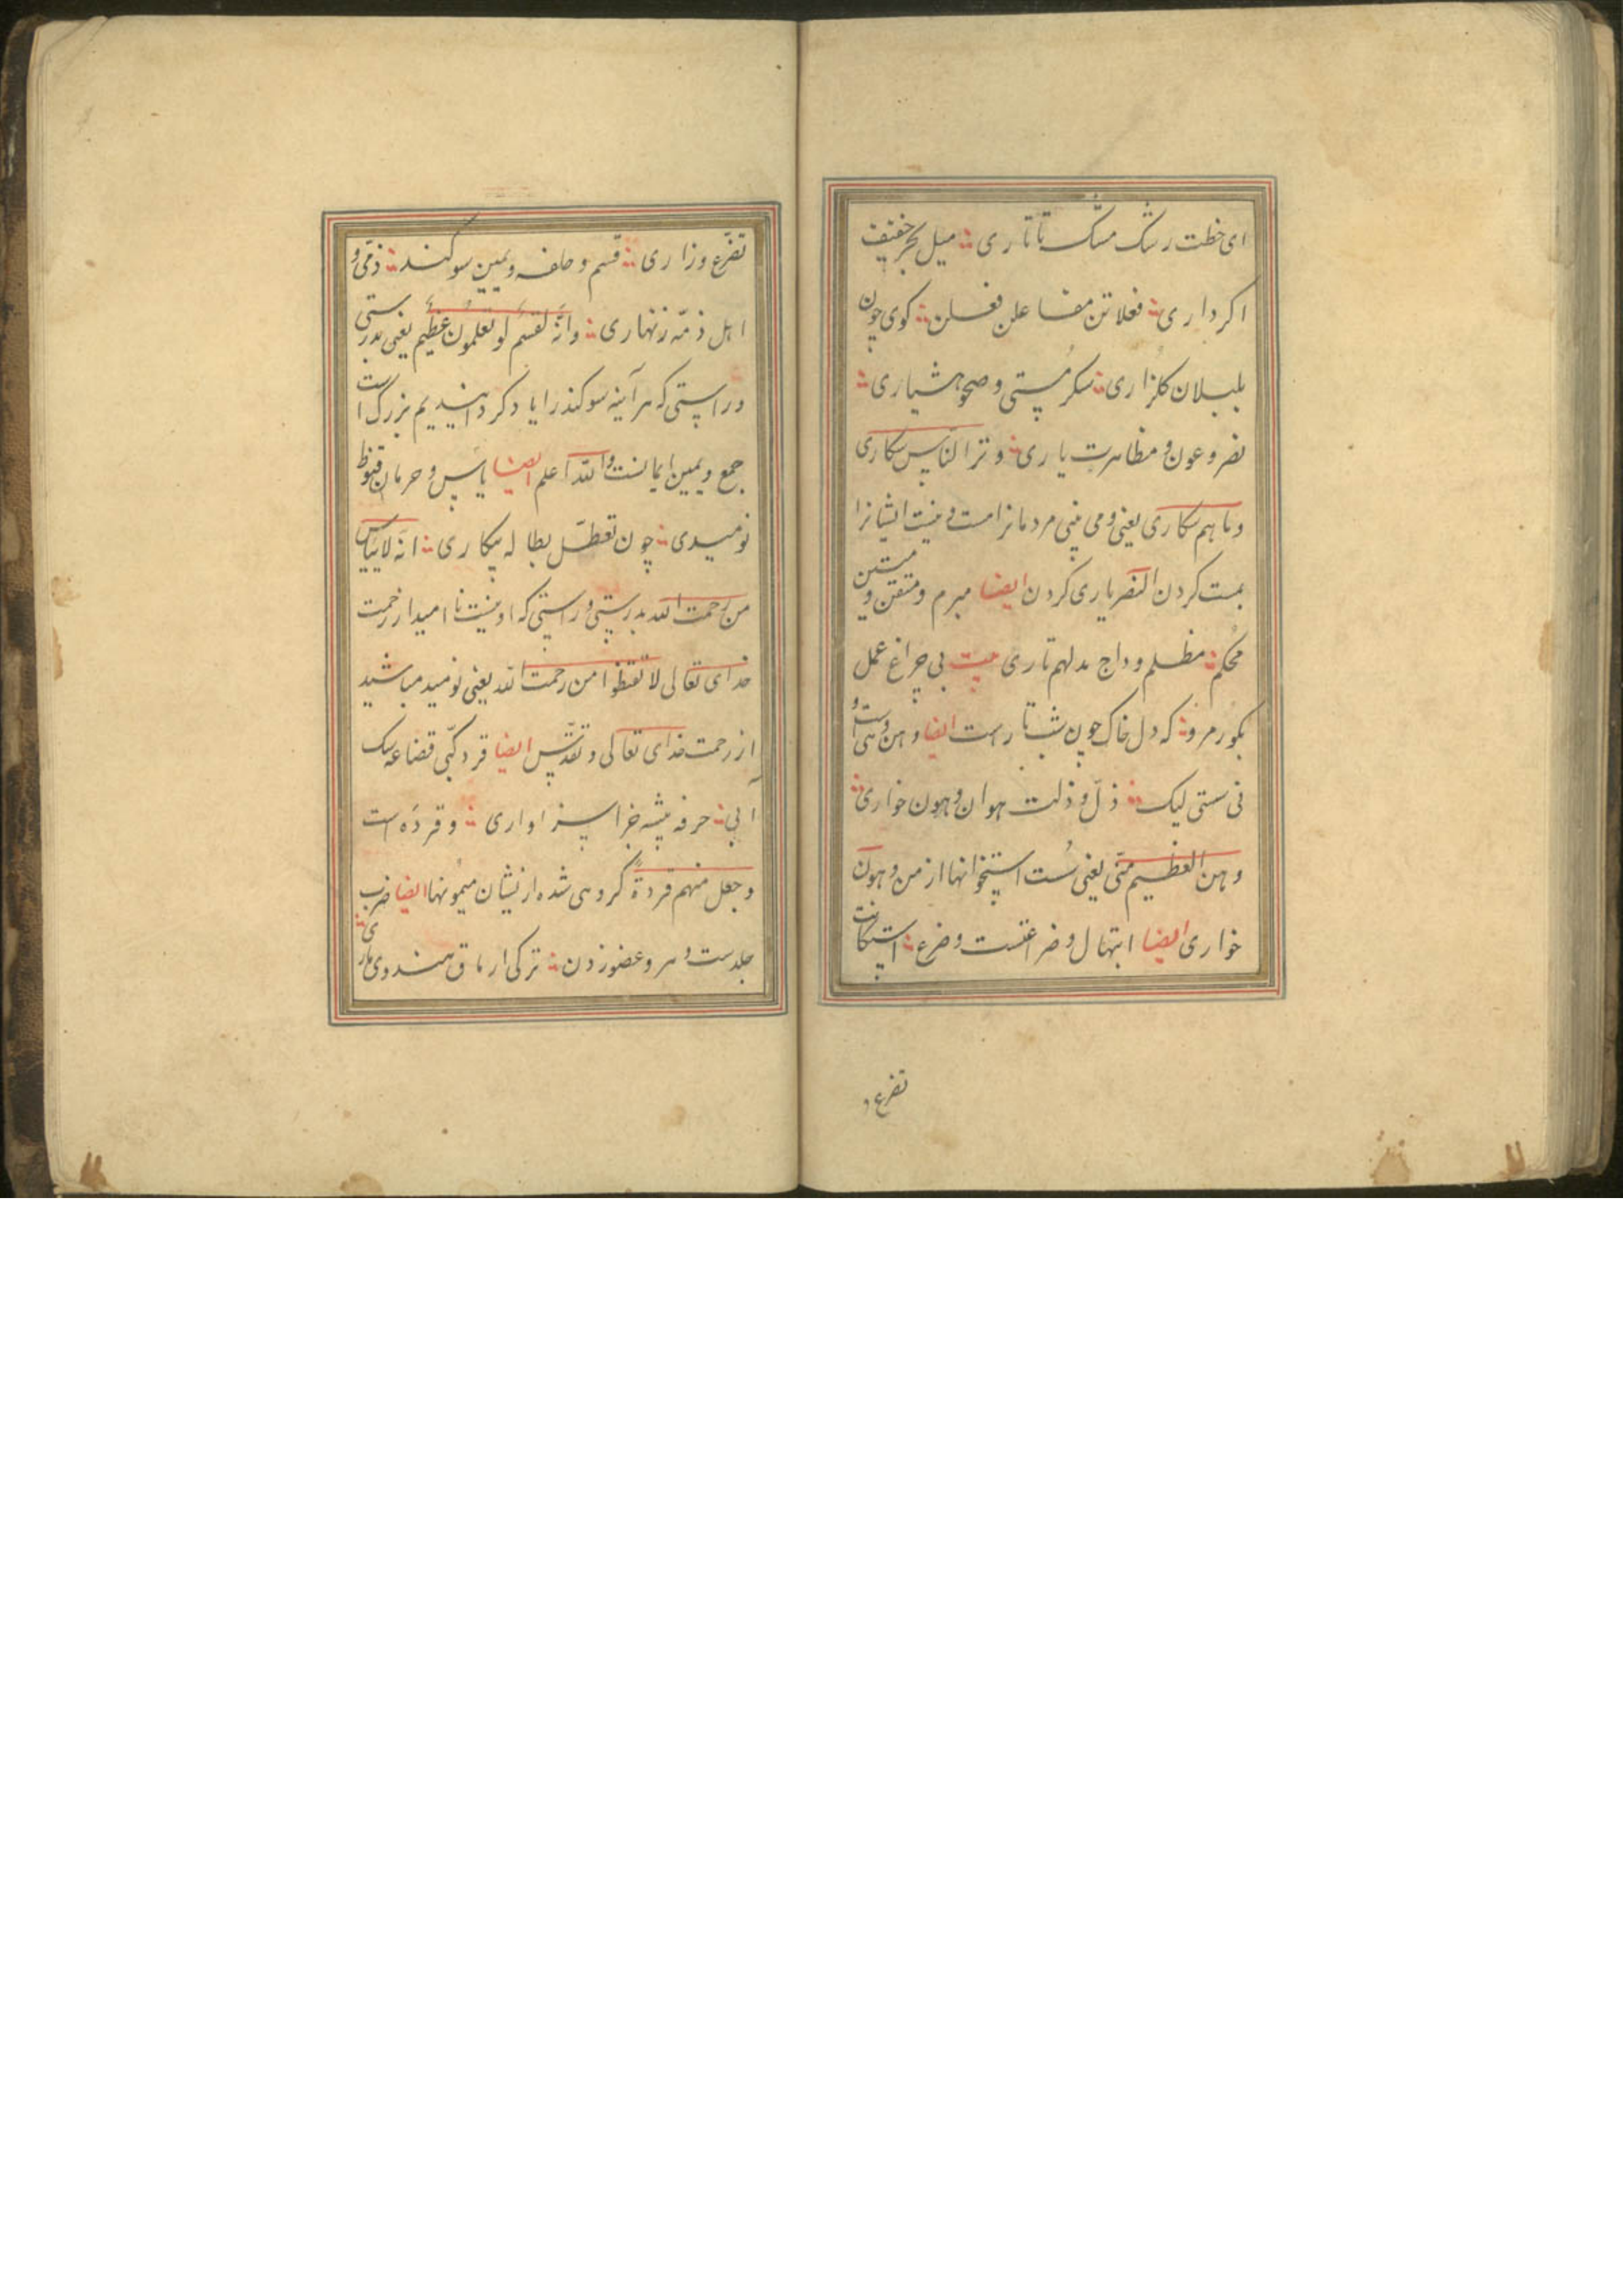 ای خطت رشک مشک تاتاری ؞ میل بحر خفیف
اکر داری ؞ فعلاتن مفاعلن فعلن ؞ کوی چون
بلبلان کلزاری ؞ سکر مستی و صحو هشیاری ؞
نصر و عون و مظاهرت یاری ؞ و تر الناس سکاری
وما هم بسکاری یعنی و می بینی مردمانرا مست و نیست ایشانرا
مست کردن النصر یاری کردن ایضا مبرم و متقن و متین
محکم ؞ مظلم و داج مدلهم تاری بیت بی چراغ عمل
بکور مرو ؞ که دل خاک چون شب تارست ایضا وهن و وهی است و
نی سستی لیک ؞ ذل و ذلت هوان و هون خواری ؞
وهن العظم منی یعنی سست استخوانها از من و هون
خواری ایضا ابتهال و ضراعتست و ضرع ؞ استکانت
تضرع و
تضرّع و زاری ؞ قسم و حلفه و یمین سوکند ؞ ذمّی و
اهل ذمّه زنهاری ؞ وانّه لقسم لو تعلمون عظیم یعنی بدرستی
و راستی که هر آینه سوکند را یاد کرد اندیم بزرک است
جمع و یمین ایمانست والله اعلم ایضا یاس و حرمان قنوط
نومیدی ؞ چون تعطّل بطاله بیکاری ؞ انه لاییاس
من رحمت الله بدرستی و راستی که او نیست نا امید از رحمت
خدای تعالی لا تقنطوا من رحمت الله یعنی نومید مباشید
از رحمت خدای تعالی و تقدّس ایضا قرد کپی قضاعه سک
آبی ؞ حرفه پیشه جزا سزاواری ؞ و قرده است
و جعل منهم قردةً کروهی شده از نشان میمونها ایضا ضرب
جلدست و سر و عضو زدن ؞ ترکی ارماق هندوی ماری ؞